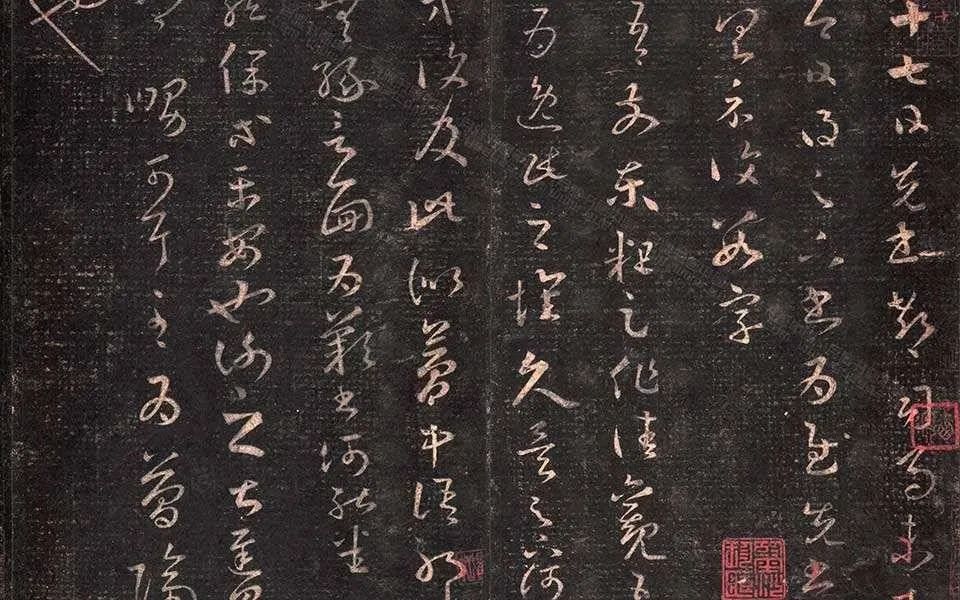 十七日先書郗司馬未
即日得足下書為慰先書
具示復數字
吾前東粗足作佳觀
為逸民之懷久矣足下何
方復及此似夢中語耶
無緣言面為歎書何能悉
龍保等平安也謝之甚遲見
卿舅可耳至為簡隔
也